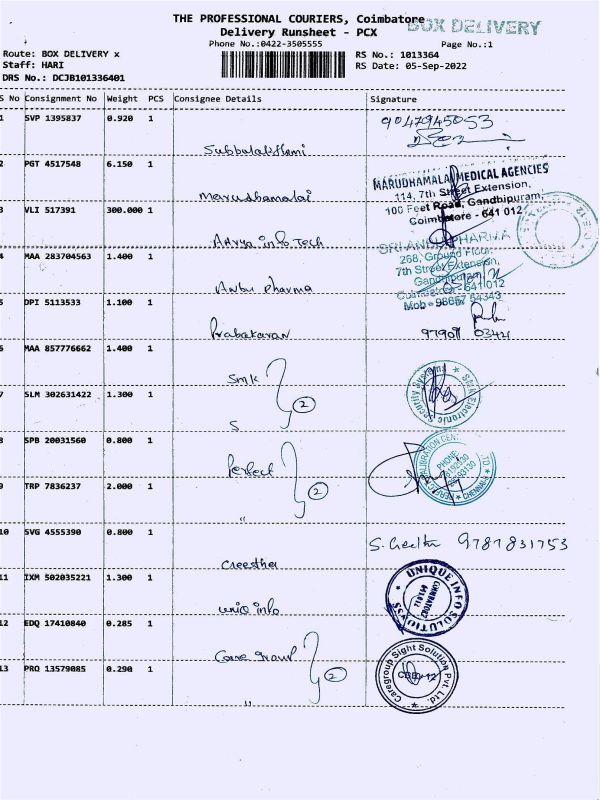 THE PROFESSIONAL COURIERS, Coimbatore
BOX DELIVERY
Delivery Runsheet - PCX
Phone No.:0422-3505555
Page No.:1
Route: BOX DELIVERY x
RS No.: 1013364
Staff: HARI
RS Date: 05-Sep-2022
DRS No.: DCJB101336401
S No Consignment No Weight PCS Consignee Details Signature
1 SVP 1395837 0.920 1
9047945053
Subbalakshmi
2 PGT 4517548 6.150 1
MARUDHAMALAI MEDICAL AGENCIES
114, 7th Street Extension,
100 Feet Road, Gandhipuram,
Coimbatore - 641 012
Marudhamalai
3 VLI 517391 300.000 1
Aadvya info Tech
SRI ANBU PHARMA
268, Ground Floor,
7th Street Extension,
Gandhipuram
Coimbatore - 641 012
Mob - 98657 64343
4 MAA 283704563 1.400 1
Anbu pharma
5 DPI 5113533 1.100 1
Prabakaran
97909 03421
6 MAA 857776662 1.400 1
SMK
2
7 SLM 302631422 1.300 1
S
8 SPB 20031560 0.800 1
Perfect
2
9 TRP 7836237 2.000 1
"
10 SVG 4555390 0.800 1
S. Geetha 9787831753
Geetha
11 IXM 502035221 1.300 1
UNIQUE INFO SOLUTIONS
COIMBATORE
uniq info
12 EDQ 17410840 0.285 1
Care group
2
13 PRQ 13579085 0.290 1
Caregroup Sight Solution Pvt. Ltd.
CBE-12
"